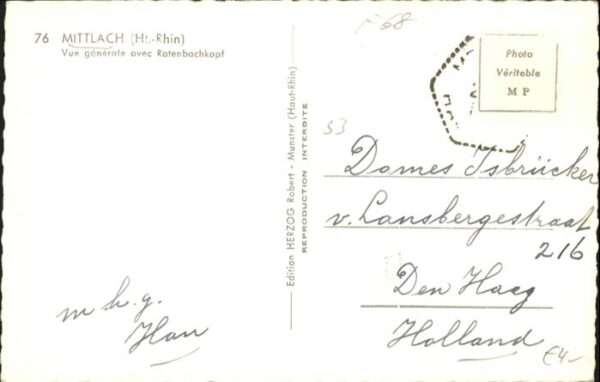 76 MITTLACH (Ht-Rhin)
Vue générale avec Rotenbachkopf
68
Photo
Véritable
M P
53
Edition HERZOG Robert - Munster (Haut-Rhin)
REPRODUCTION INTERDITE
Dames Isbrücker
v. Lansbergestraat
216
Den Haag
Holland
m h. g.
Han
€4-